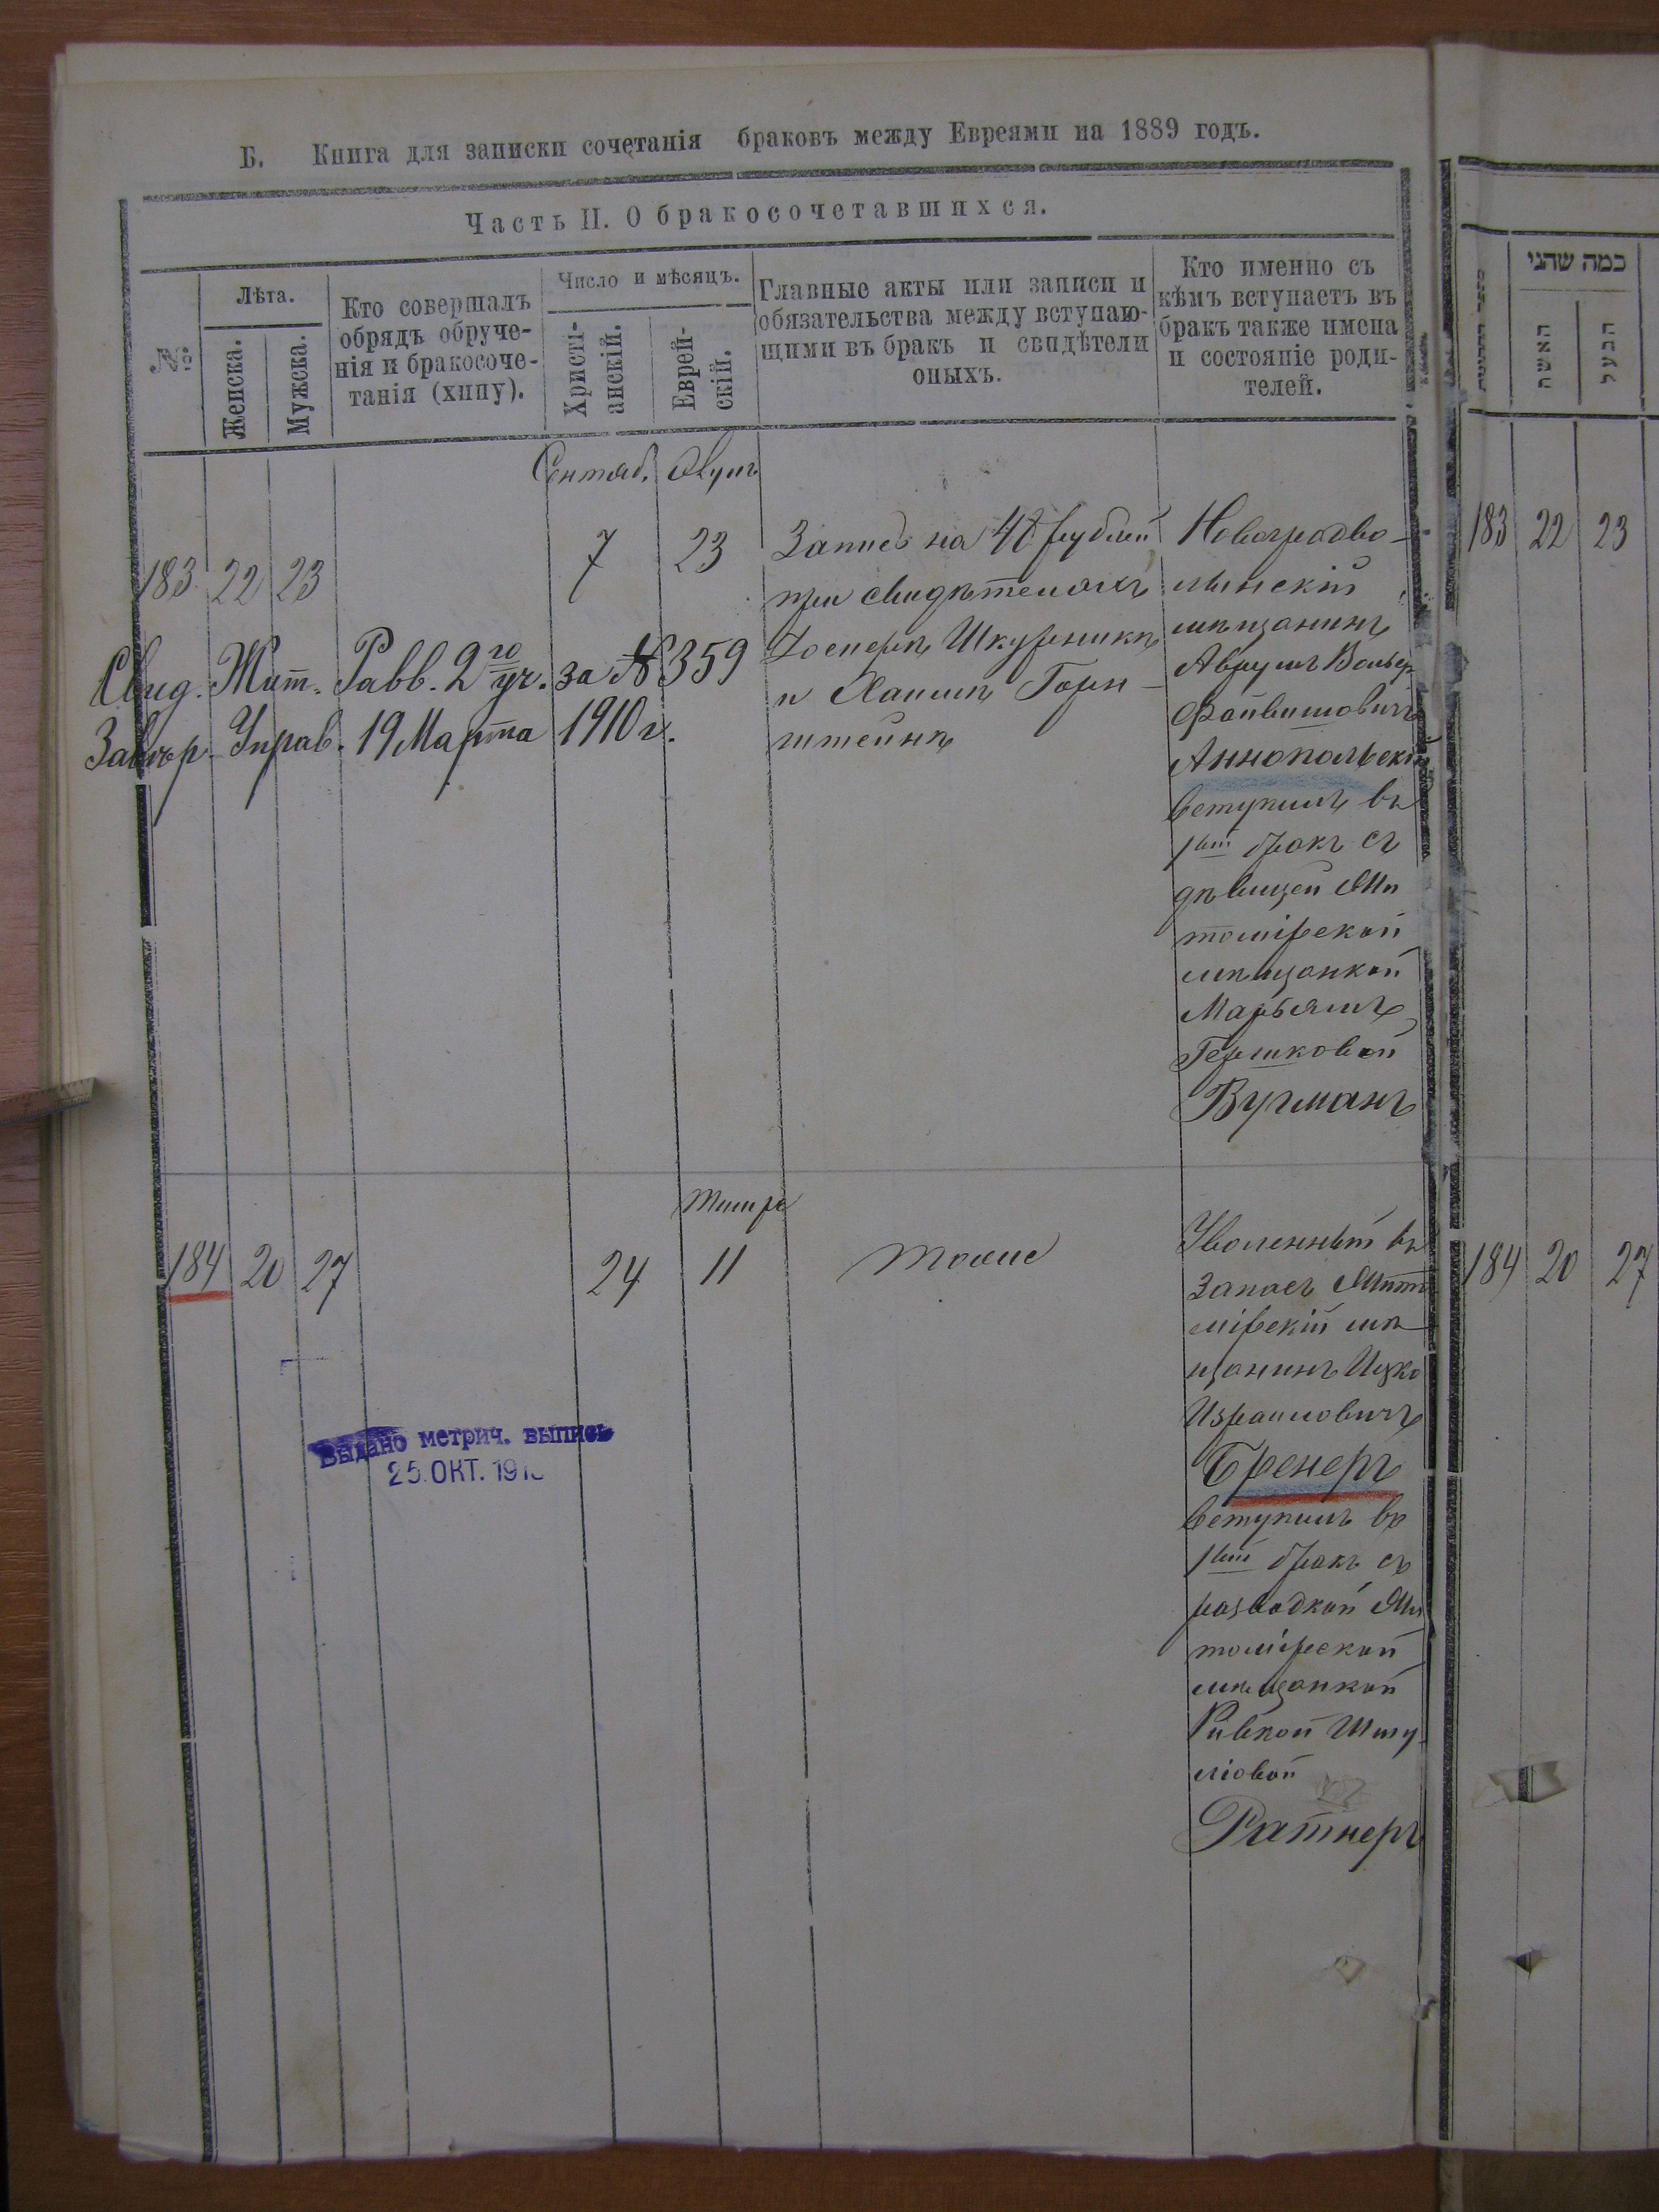 Б. Книга для записки сочетанія браковъ между Евреями на 1889 годъ.
Часть II. О бракосочетавшихся.
№
Лѣта.
Женска.
Мужска.
Кто совершалъ
обрядъ обруче-
нія и бракосоче-
танія (хипу).
Число и мѣсяцъ.
Христі-
анскій.
Еврей-
скій.
Главные акты или записи и
обязательства между вступаю-
щими въ бракъ и свидѣтели
оныхъ.
Кто именно съ
кѣмъ вступаетъ въ
бракъ также имена
и состояніе роди-
телей.
Сентяб.
183 22 23
7 23
Запись на 48 рублей
при свидѣтеляхъ
Шкурникъ
и Хаимъ Горн-
штейнъ
Новоградво-
лынскій
мѣщанинъ
Аврумъ Вольф
Файвишовичъ
Аннопольскій
вступилъ въ
1вый бракъ съ
дѣвицей Жи
томірской
мѣщанкой
Марьямъ
Гершковой
Вугманъ
Свид. Жит. Равв. 2го уч. за № 359
Завѣр. Управ. 19 Марта 1910 г.
Тишре
184 20 27
24 11
тоже
Уволенный въ
Запасъ Жито
мірскій мѣ
щанинъ Ицко
Израиловичъ
Бренеръ
вступилъ въ
1вый бракъ съ
разводкой Жи
томірской
мѣщанкой
Ривкой Шму
ліовой
Ратнеръ
Выдано метрич. выпись
25. ОКТ. 191
כמה שהני
האשה
הבעל
183 22 23
184 20 27